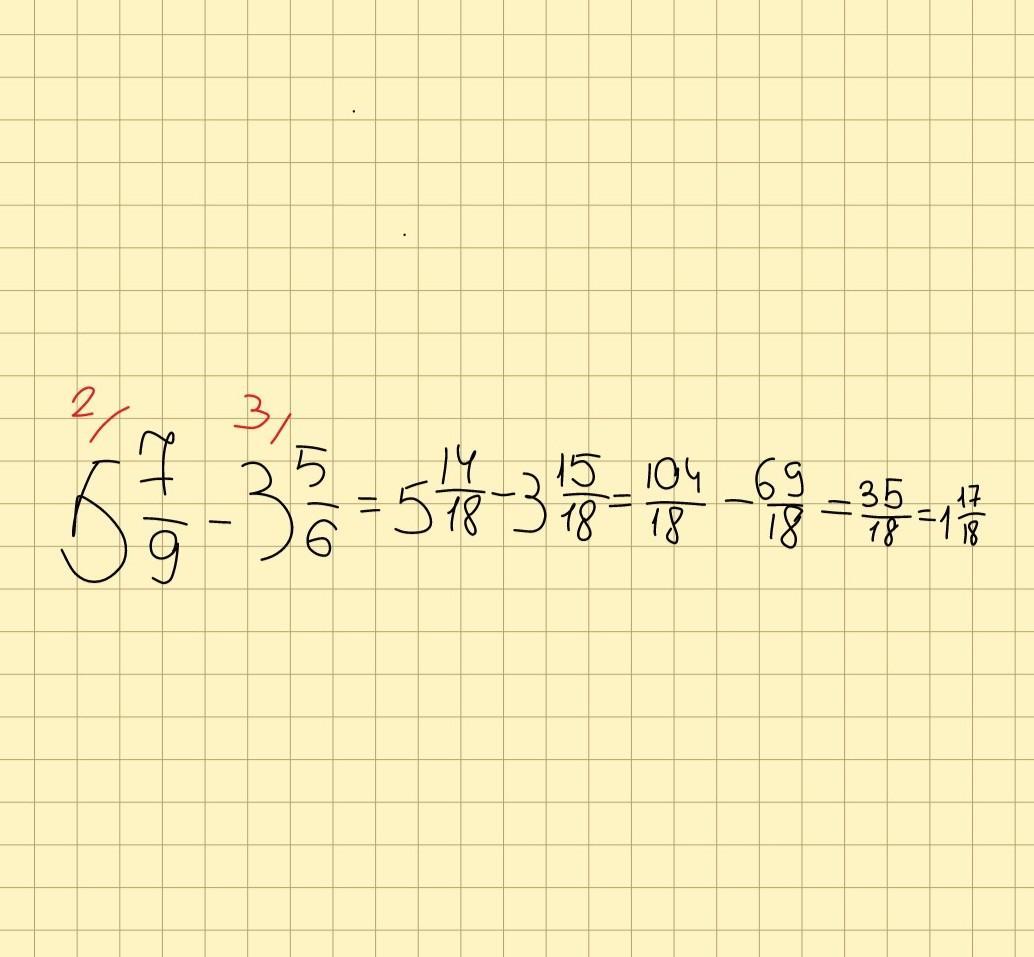 2/ 3/
5 7/9 - 3 5/6 = 5 14/18 - 3 15/18 = 104/18 - 69/18 = 35/18 = 1 17/18